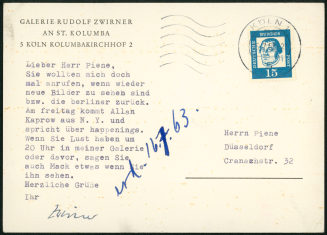 GALERIE RUDOLF ZWIRNER
AN ST. KOLUMBA
5 KÖLN KOLUMBAKIRCHHOF 2
Lieber Herr Piene,
Sie wollten mich doch
mal anrufen, wenn wieder
neue Bilder zu sehen sind
bzw. die berliner zurück.
Am freitag kommt Allan
Kaprow aus N. Y. und
spricht über happenings.
Wenn Sie Lust haben um
20 Uhr in meiner Galerie
oder davor, sagen Sie
auch Mack etwas wenn Sie
ihn sehen.
Herzliche Grüße
Ihr
Zwirner
16.7.63.
KÖLN
DEUTSCHE BUNDESPOST
15
Herrn Piene
Düsseldorf
Cranachstr. 32